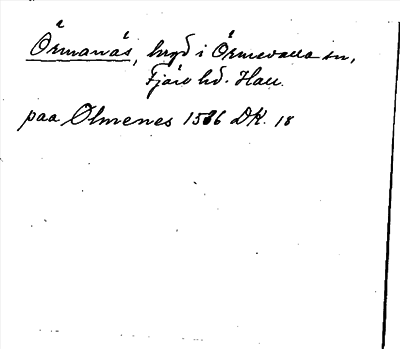 Örmanäs, bygd i Örmevalla sn,
Fjäre hd. Hall.
paa Olmenes 1586 DK. 18